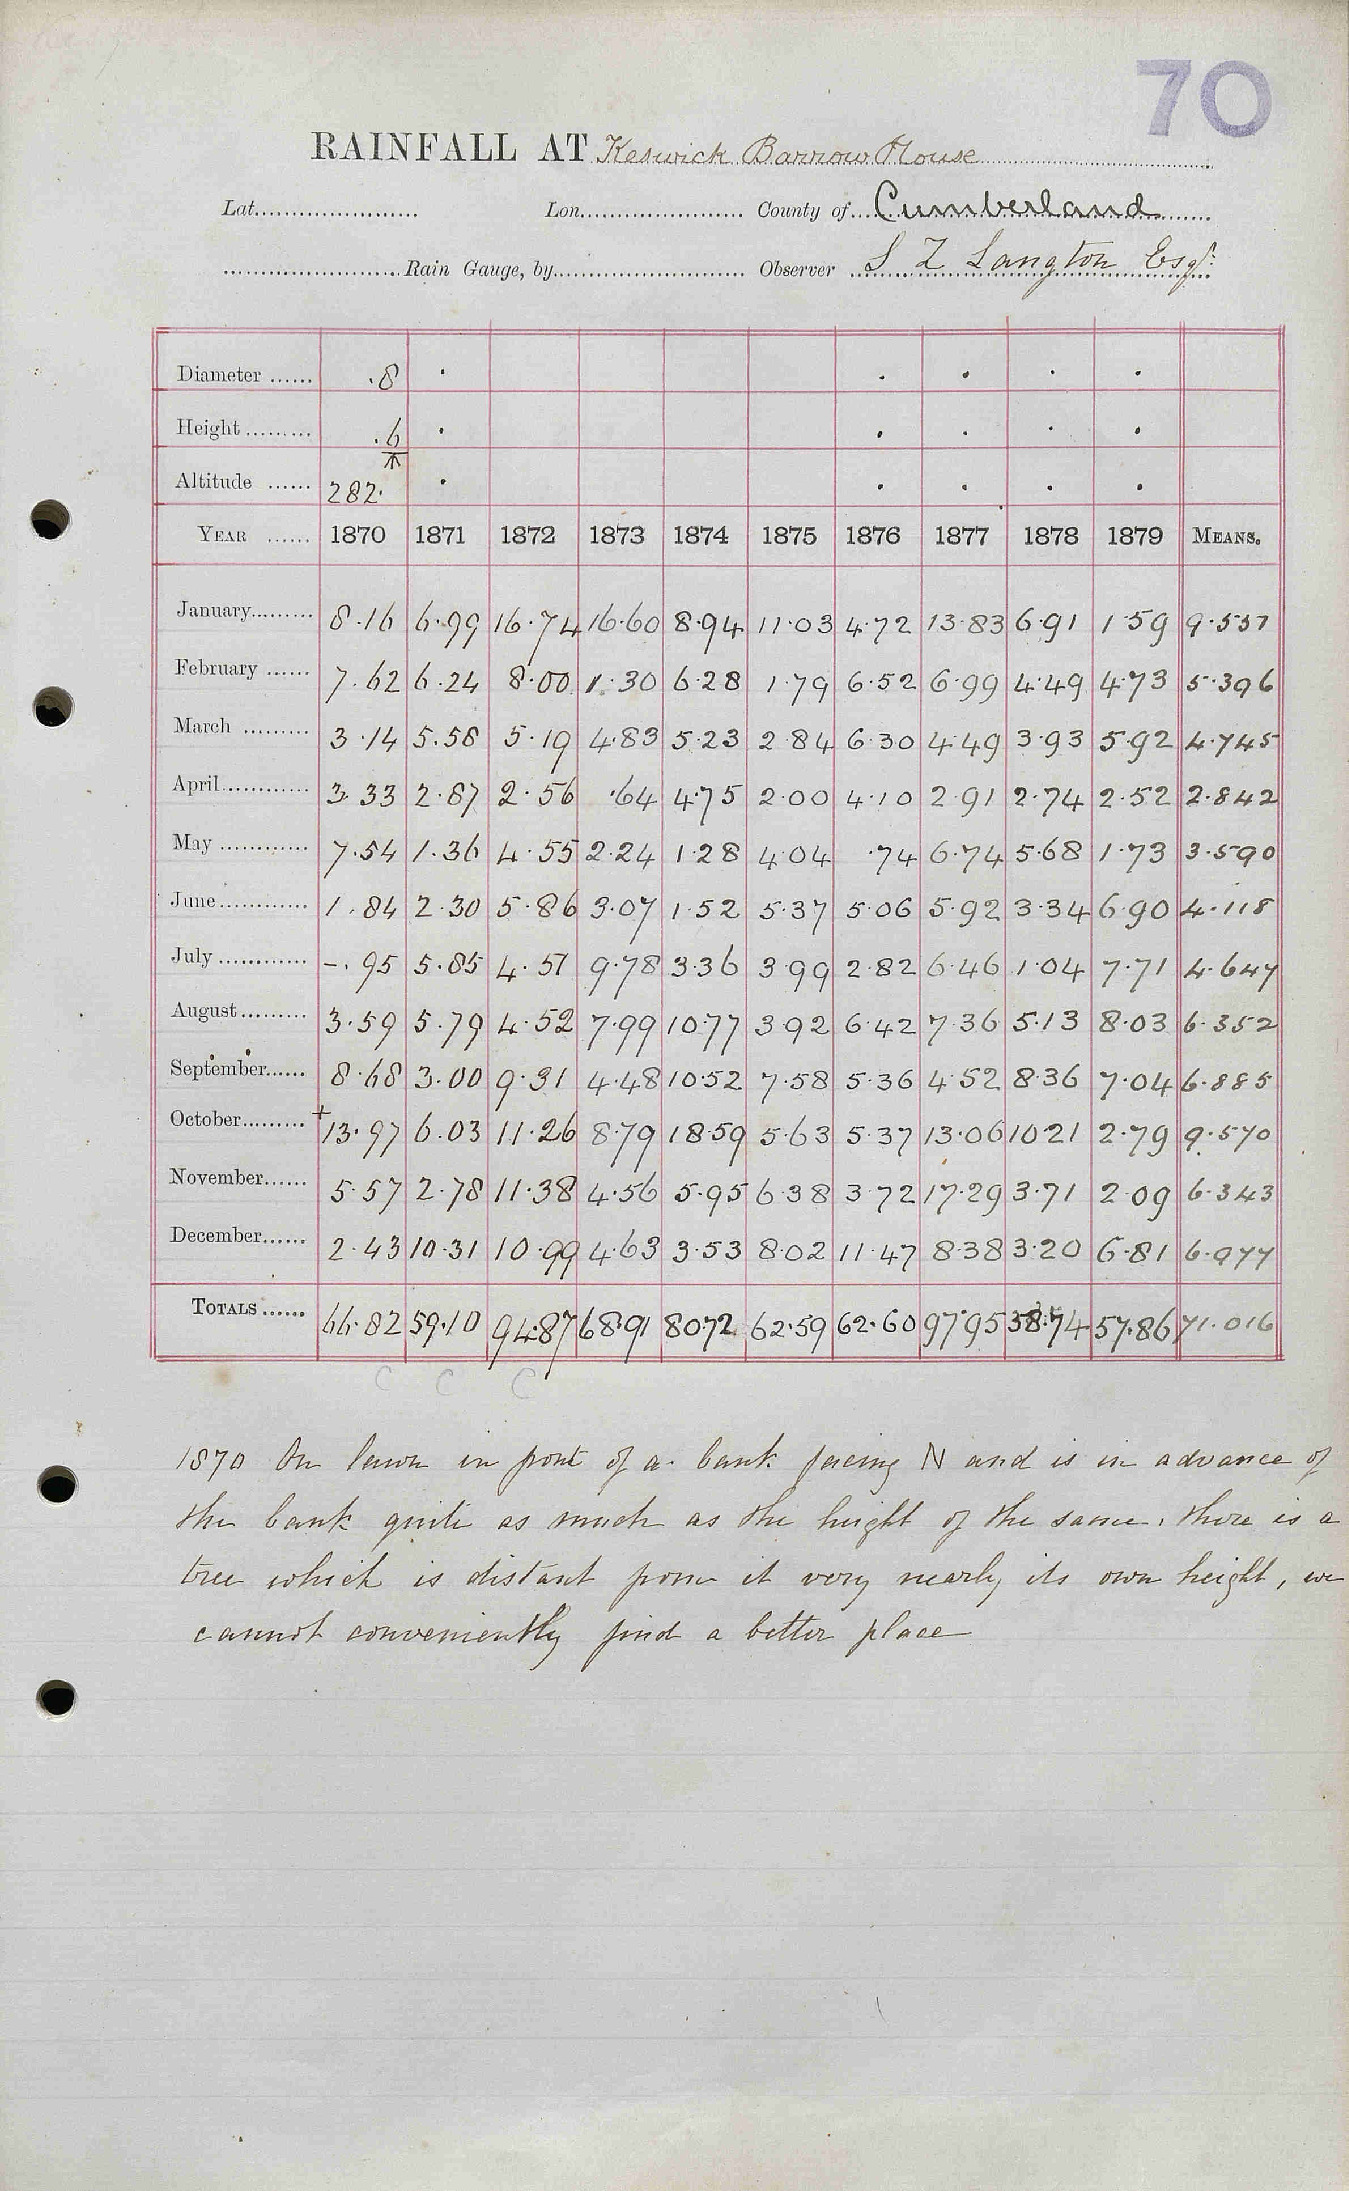 70
RAINFALL AT Keswick Barrow House
Lat. Lon. County of Cumberland
Rain Gauge, by Observer S Z Langton Esqr.
Diameter .8
Height .6
Altitude 282
YEAR 1870 1871 1872 1873 1874 1875 1876 1877 1878 1879 MEANS.
January 8.16 6.99 16.74 16.60 8.94 11.03 4.72 13.83 6.91 1.59 9.557
February 7.62 6.24 8.00 1.30 6.28 1.79 6.52 6.99 4.49 4.73 5.396
March 3.14 5.58 5.19 4.83 5.23 2.84 6.30 4.49 3.93 5.92 4.745
April 3.33 2.87 2.56 .64 4.75 2.00 4.10 2.91 2.74 2.52 2.842
May 7.54 1.36 4.55 2.24 1.28 4.04 .74 6.74 5.68 1.73 3.590
June 1.84 2.30 5.86 3.07 1.52 5.37 5.06 5.92 3.34 6.90 4.118
July -.95 5.85 4.51 9.78 3.36 3.99 2.82 6.46 1.04 7.71 4.647
August 3.59 5.79 4.52 7.99 10.77 3.92 6.42 7.36 5.13 8.03 6.352
September 8.68 3.00 9.31 4.48 10.52 7.58 5.36 4.52 8.36 7.04 6.885
October +13.97 6.03 11.26 8.79 18.59 5.63 5.37 13.06 10 21 2.79 9.570
November 5.57 2.78 11.38 4.56 5.95 6.38 3.72 17.29 3.71 2.09 6.343
December 2.43 10.31 10.99 4.63 3.53 8.02 11.47 8.38 3.20 6.81 6.977
TOTALS 66.82 59.10 94.87 68.91 80.72 62.59 62.60 97.95 58.74 57.86 71.016
C C C
1870 On lawn in front of a bank facing N and is in advance of
the bank quite as much as the height of the same. there is a
tree which is distant from it very nearly its own height, we
cannot conveniently find a better place